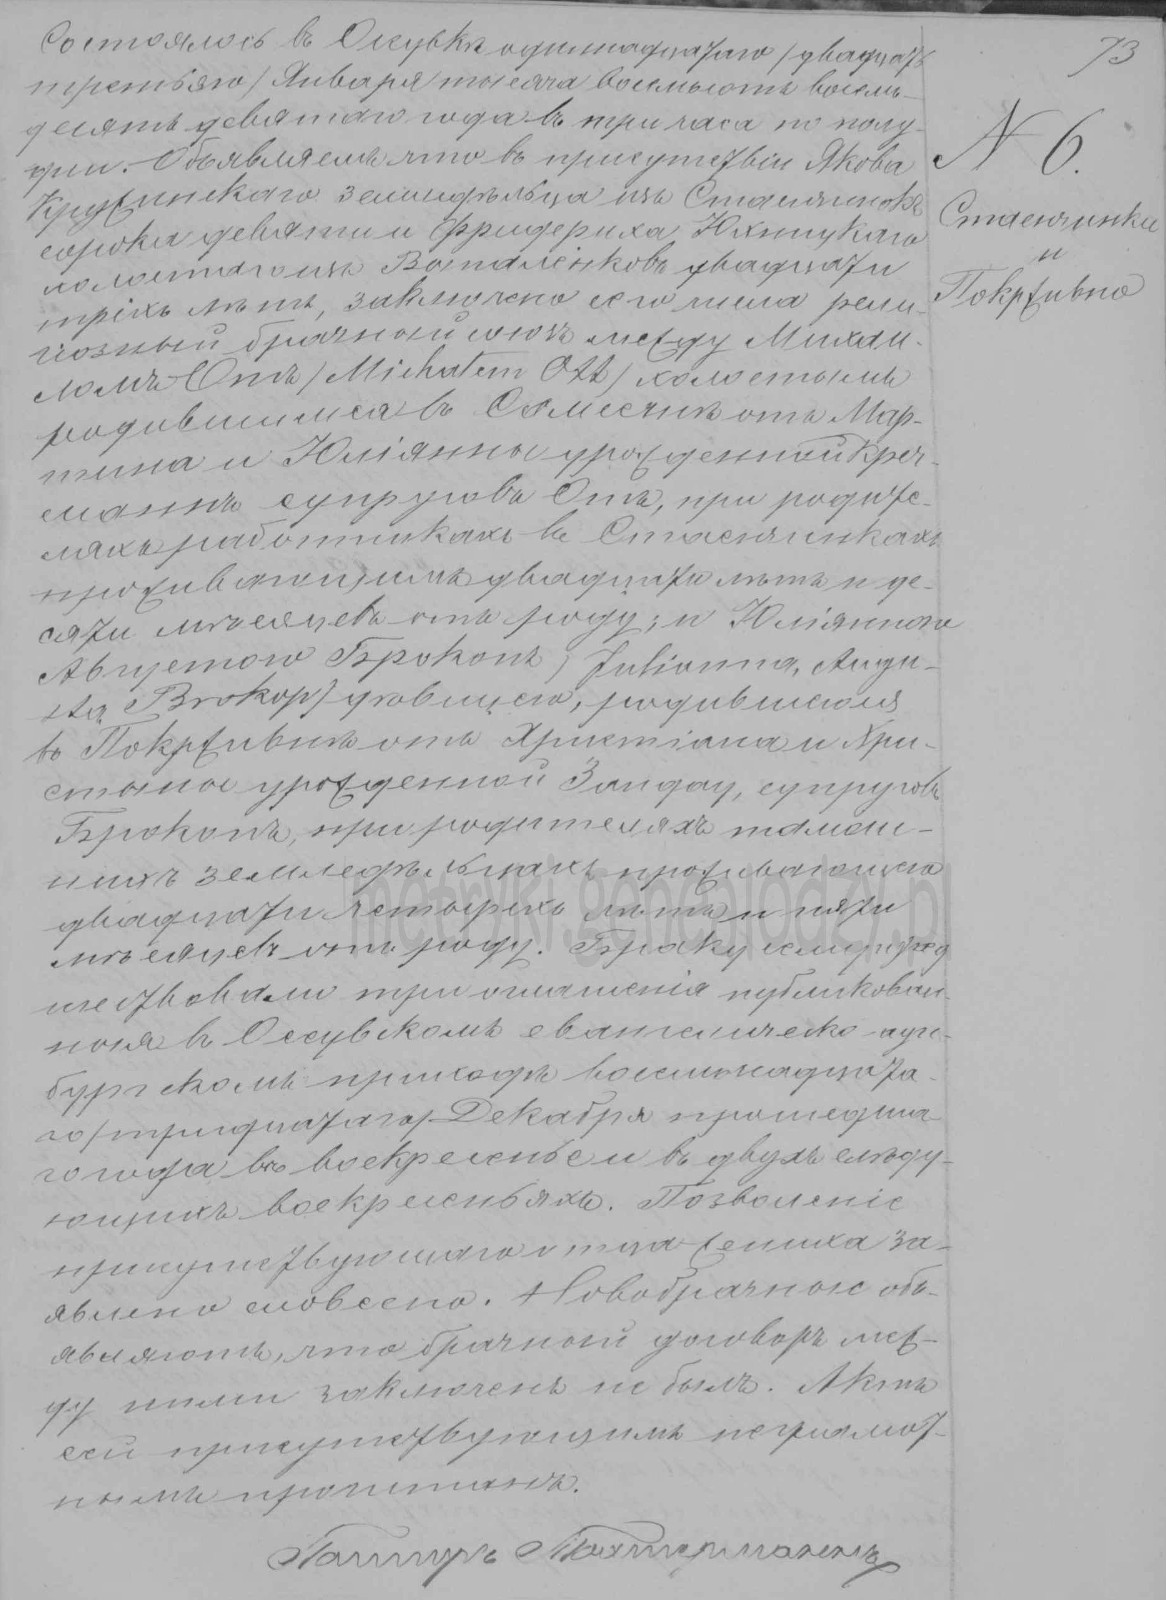 73
N 6.
Стасчинки
и
Покртивно
Состоялось въ Осувкѣ одинадцатаго /двадцать
третьяго/ Января тысяча восемьсотъ восемь-
десятъ девятаго года въ три часа по полу-
дни. Объявляемъ что въ присутствіи Якова
земледѣльца изъ
сорока девяти и Фридериха
холостаго изъ двадцати
трехъ лѣтъ, заключено сего числа рели-
гіозный брачный союзъ между Михаи-
ломъ Отъ /Michałem Ott/ холостымъ
родившимся въ отъ Мар-
тина и Юліянны урожденной Креч-
маннъ супруговъ Отъ, при родите-
ляхъ работникахъ въ Стасчинкахъ
проживающимъ двадцати лѣтъ и де-
сяти мѣсяцевъ отъ роду; и Юліянною
Августою Брокопъ / Julianną, Augu-
stą Brokop/ дѣвицею, родившеюся
въ отъ Христіана и Хри-
стины урожденной Зандау, супруговъ
Брокопъ, при родителяхъ тамош-
нихъ земледѣльцахъ проживающею
двадцати четырехъ лѣтъ и пяти
мѣсяцевъ отъ роду. Браку сему пред
шествовали три оглашенія публикован-
ныя въ Осувскомъ евангелическо-аугс-
бургскомъ приходѣ восемнадцата-
го/тридцатаго/ Декабря прошедша
го года, въ воскресенье и въ двухъ слѣду-
ющихъ воскресеньяхъ. Позволеніе
присутствующаго отца жениха за-
явлено словесно. Новобрачные объ-
являютъ, что брачный договоръ меж-
ду ними заключенъ не былъ. Актъ
сей присутствующимъ неграмот-
нымъ прочитанъ.
Пасторъ
metryki.genealodzy.pl